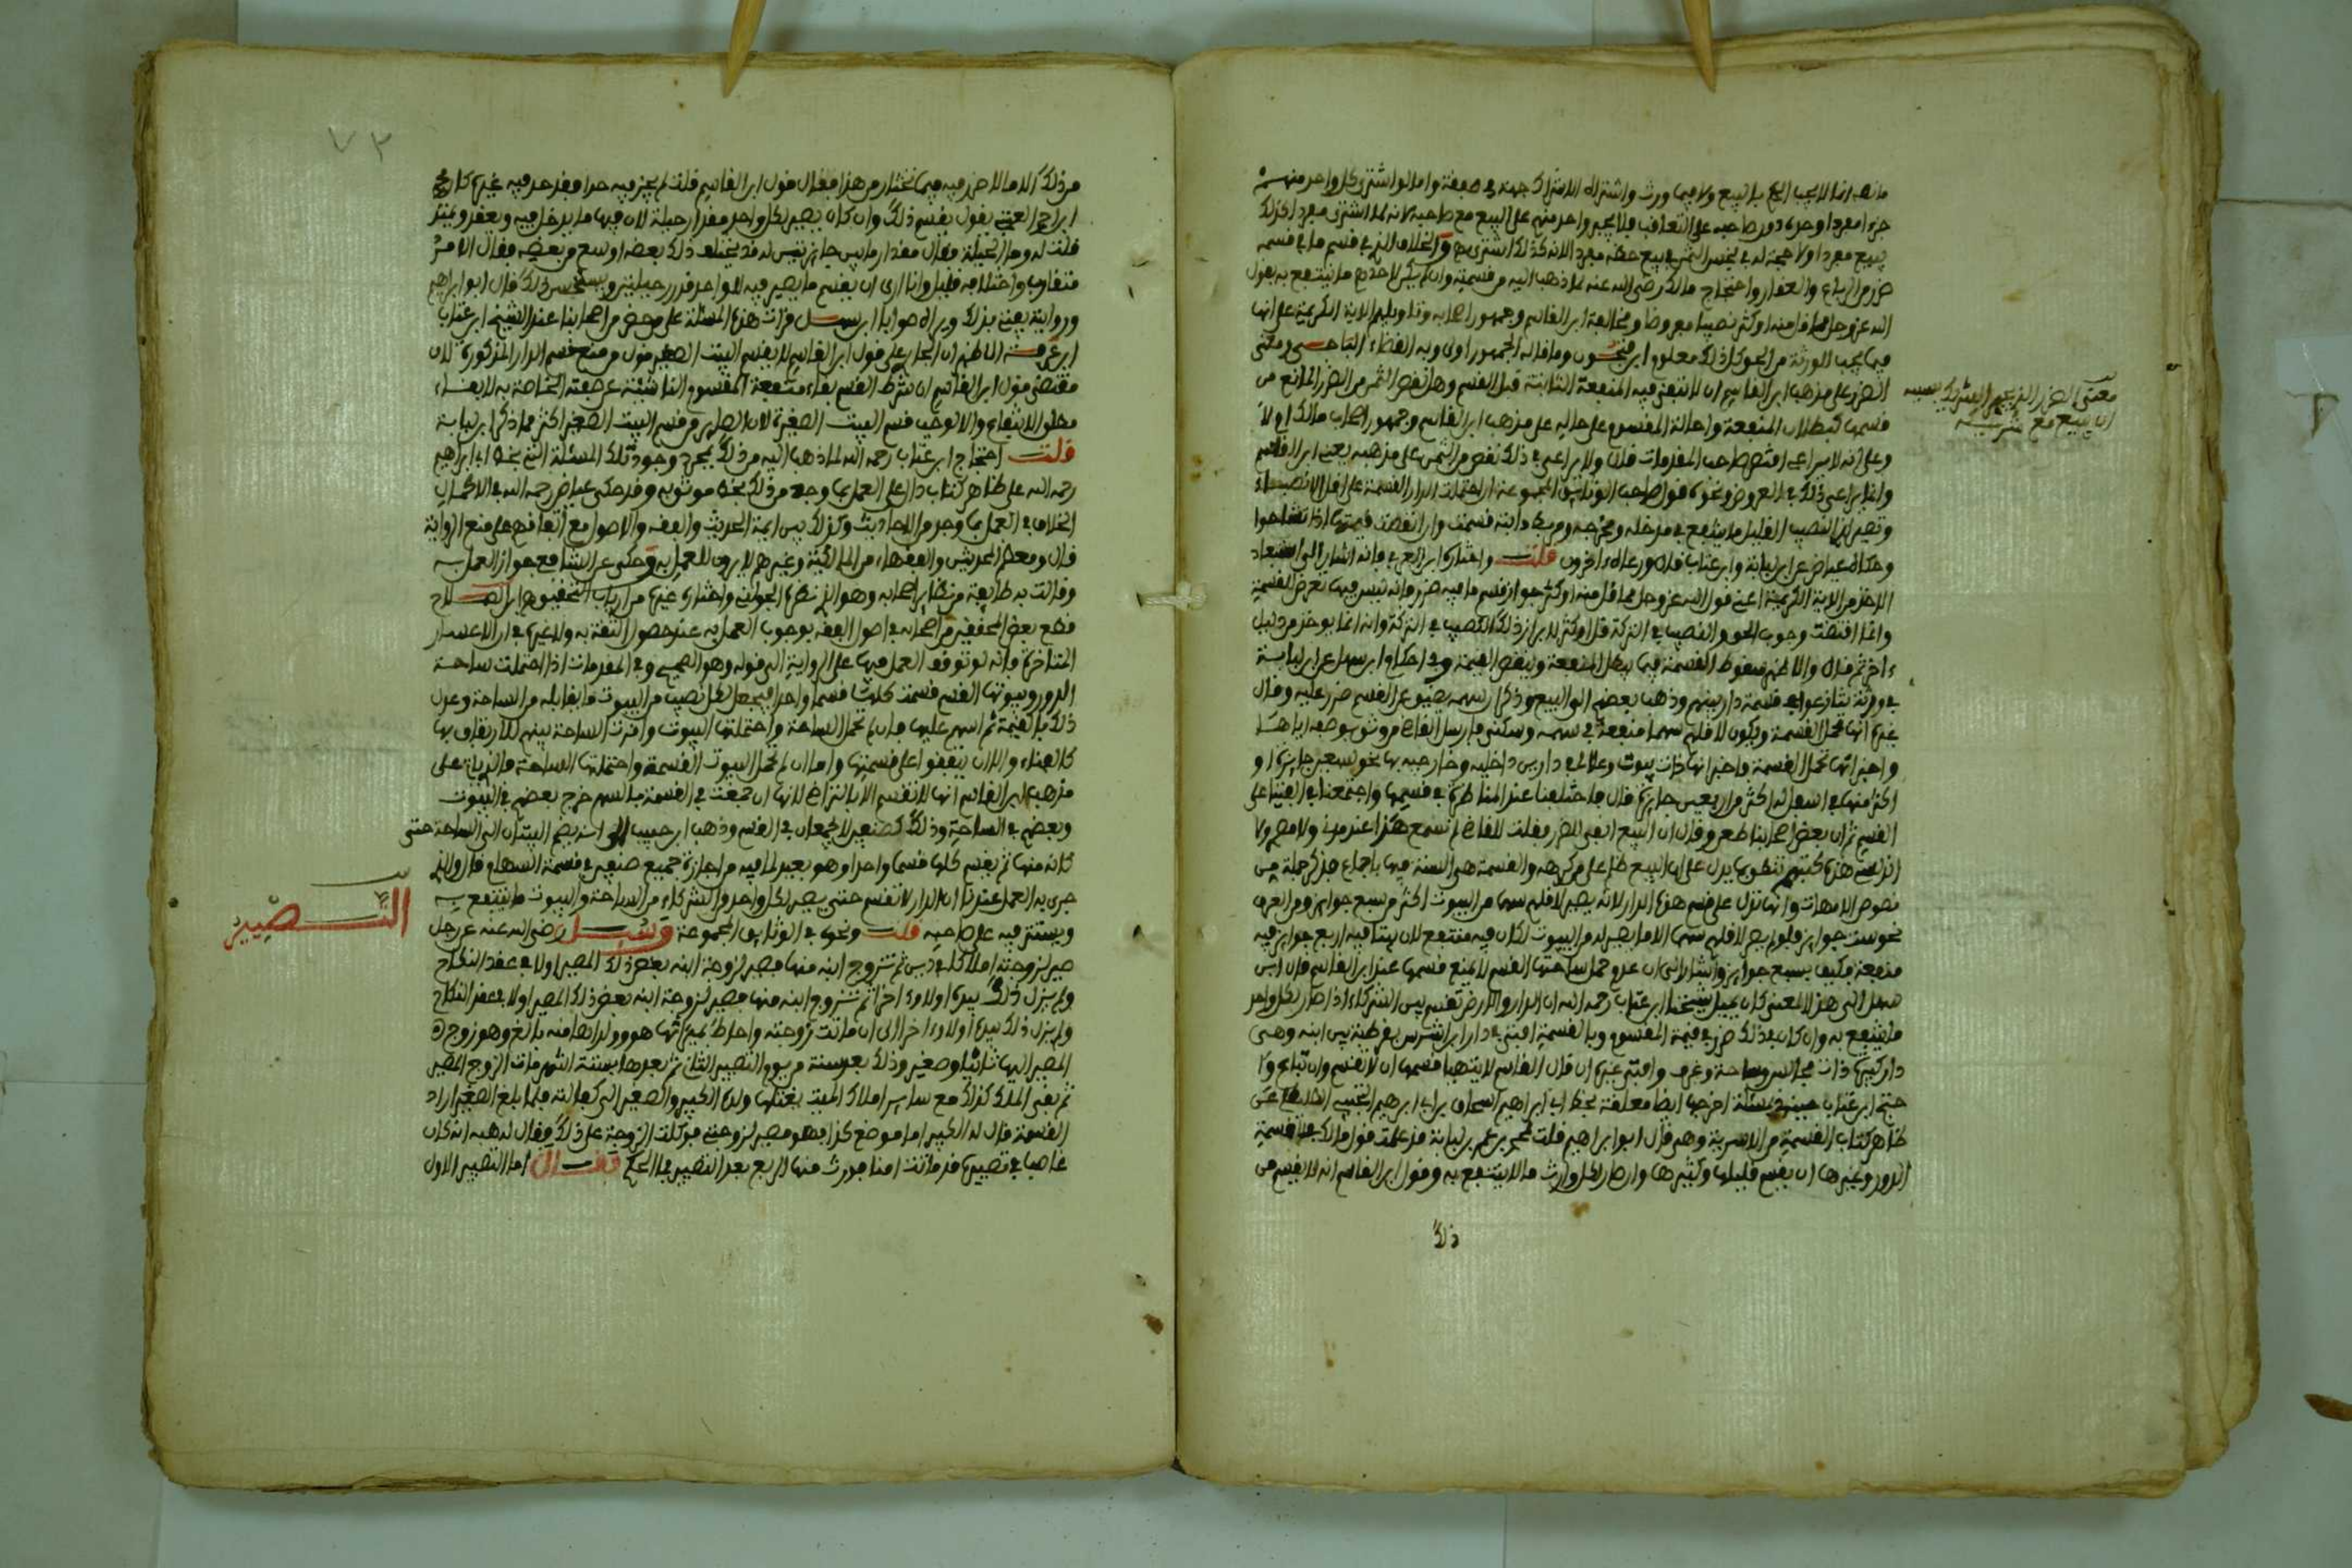 ما نصه انما لا يجب الحكم بالبيع ولا فيما ورث واشتراه الاشراك جملة في صفقة واما لو اشترى كل واحد منهم
جزءا مفردا وحده دون صاحبه على التعاقب فلا يجبر واحد منهم على البيع مع صاحبه لانه لما اشترى مفردا كذلك
يبيع مفردا ولا حجة له في بخس الثمن في بيع حظه مفردا لانه كذلك اشترى والخلاف الذي في قسم ما في قسمه
ضرر من الرباع والعقار واحتجاج مالك رضي الله عنه لما ذهب اليه من قسمته وان لم يكن لاحدهم ما ينتفع به بقول
الله عز وجل مما قل منه او كثر نصيبا مفروضا ومخالفة ابن القاسم وجمهور اصحابه وتاويلهم الاية الكريمة على انها
فيما يجب للورثة من الحق وكل ذلك معلوم ابن فتحون وما قاله الجمهور اولى وبه القضاء الباجي ومعنى
الضرر على مذهب ابن القاسم ان لا تبقى فيه المنفعة الثابتة قبل القسم وهل نقص الثمن من الضرر المانع من
قسمها كبطلان المنفعة واحالة المقسوم على حاله على مذهب ابن القاسم وجمهور اصحاب مالك اولا
وعلى انه لا يراعى اقتصر صاحب المقدمات قال ولا يراعى في ذلك نقص من الثمن على مذهبه يعني ابن القاسم
وانما يراعى ذلك في العروض ونحوه قول صاحب الوثائق المجموعة ان احتملت الدار القسمة على اقل الانصباء
وتصير لذا النصيب القليل ما ينتفع في مدخله ومخرجه ومربط دابته قسمت وان انتقصت قيمتها اذا تشاحوا
وحكاه عياض عن ابن لبابة وابن عتاب قال ورءاه ءاخرون قلت واختاره ابن العربي فانه اشار الى استبعاد
الاخذ من الاية الكريمة اعني قول الله عز وجل مما قل منه او كثر جواز قسم ما فيه ضرر فانه ليس فيها تعرض للقسمة
وانما اقتضت وجوب الحق والنصيب في التركة قل او كثر لا براز ذلك النصيب في التركة وانه انما يوخذ من دليل
ءاخر ثم قال والاظهر سقوط القسمة فيما يبطل المنفعة وينقص القيمة وفي احكام ابن سهل عن ابن لبابة
في ورثة تنازعوا في قسمة دار بينهم وذهب بعضهم الى البيع وذكر ان سهمه يضيق على القسم ضرر عليه وقال
غيره انها تحمل القسمة ويكون لاقلهم سهما منفعة في سهمه وسكنى فارسل القاضي من وثق بوصفه اياها
واخبر انها تحمل القسمة واخبر انها ذات بيوت وعلالي في دارين داخلية وخارجية بها نحو تسعين جايزة او
اكثر منها في اسفل الدار اكثر من اربعين جايزة قال فاختلفنا عند المناظرة في قسمها واجتمعنا في الفتيا على
القسم ثم ان بعض اصحابنا طعن وقال ان البيع انفى للضرر فقلت للقاضي لم نسمع هكذا عند من
نصوص الامهات وانها تدل على قسم هذه الدار لانه يصير لاقلهم سهما من البيوت اكثر من سبع جوايز ومن الغرف
نحو ست جوايز فلو لم يصر لاقلهم سهما الا ما يصير له من البيوت لكان فيه منتفع لان بيتا فيه اربع جوايز فيه
منفعة فكيف بسبع جوايز واشار الى ان عدم حمل ساحتها القسم لا يمنع قسمها عند ابن القاسم قال ابن
سهل الى هذا المعنى كان يميل شيخنا ابن عتاب رحمه الله ان الدار والارض تقسم بين الشركاء اذا صار لكل واحد
ما ينتفع به وان كان في ذلك ضرر في قيمة المقسوم وبالقسمة افتى في دار ابن اشرس بقرطبة بين ابنه وهي
دار كبيرة ذات مجالس وساحة وغرف وافتى غيره ان قال القاسم لا يتهيا قسمها ان لا تقسم وان تباع
حتج ابن عتاب مسئلة اخرجها ايضا معلقة بخط ابي ابراهيم اسحاق بن ابراهيم التجيبي
ظاهر كتاب القسمة من الاسدية وهي قال ابو ابراهيم قلت لمحمد بن عمر بن لبابة قد علمت قول مالك في قسمة
الدور وغيرها ان يقسم قليلها وكثيرها وان صار لكل وارث ما لا ينتفع به وقول ابن القاسم انه لا يقسم من
ذلك
معنى الضرر الذي يجبر الشريك بسببه
ان يبيع مع شريكه
٧٣
من ذلك الا ما لا ضرر فيه فيما تختار من هذا فقال قول ابن القاسم قلت لم يحد فيه حدا فقد حد فيه غيره كان
ابراهيم العجني يقول يقسم ذلك وان كان يصير لكل واحد مقدار حيلة لان فيها ما يدخل فيه ويقعد ويتنز
قلت له وما الحيلة فقال مقدار ما بين جايزتين قد يختلف ذلك بعضه اوسع من بعض فقال الامر
متقارب واختلافه قليل وانا ارى ان يقسم ما يصير فيه للواحد قدر حيلتين ويستحسن ذلك قال ابو ابراهيم
وروايته يعني بذلك ويراه صوابا ابن سهل قرات هذه المسئلة على بعض من اصحابنا عند الشيخ ابن عتاب
ابن عرفة الاظهر ان الجار على قول ابن القاسم لا يقسم البيت الصغير قول من منع قسم الدار المذكورة لان
مقتضى قول ابن القاسم ان شرط القسم بقاء منفعة المقسوم الناشئة عن صفته الخاصة به لا بقاء
مطلق الانتفاع والا لوجب قسم البيت الصغير لان الصاير من قسم البيت الصغير اكثر مما ذكر ابن لبابة
قلت احتجاج ابن عتاب رحمه الله لما ذهب اليه من ذلك بمجرد وجود تلك المسئلة التي بخط ابي ابراهيم
رحمه الله على ظاهر كتاب دال على العمل بما وجد من ذلك بخط موثوق به وقد حكى عياض رحمه الله في الاكمال
الخلاف في العمل بما وجد من الاحاديث وكذلك بين ايمة الحديث والفقه والاصول مع اتفاقهم على منع الرواية
قال ومعظم المحدثين والفقهاء من المالكية وغيرهم لا يرون العمل به وحكى عن الشافعي جواز العمل به
وقالت به طائفة من نظار اصحابه وهو الذي نصره الجويني واختاره غيره من ارباب التحقيق وهو ابن الصلاح
قطع بعض المحققين من اصحابه في اصول الفقه بوجوب العمل به عند حصول الثقة به ولا غيره في الاعصار
المتاخرة فانه لو توقف العمل فيها على الرواية الى قوله وهو الصحيح وفي المقدمات اذا احتملت ساحة
الدور وبيوتها القسم قسمت كلها قسما واحدا فيجعل لكل نصيب من البيوت ما يقابله من الساحة وعدل
ذلك بالقيمة ثم اسهم عليها فان لم تحمل الساحة واحتملتها البيوت وافرت الساحة بينهم للارتفاق بها
كالفناء والا ان يتفقوا على قسمتها واما ان لم تحمل البيوت القسمة واحتملتها الساحة فالذي ياتي على
مذهب ابن القاسم انها لا تقسم الا بالتراضي لانها ان جمعت في القسمة بالسهم خرج بعضهم في البيوت
وبعضهم في الساحة وذلك كصنفين لا يجمعان في القسم وذهب ابن حبيب الى انه يضم البنيان الى الساحة حتى
كانه منها ثم يقسم كلها قسما واحدا وهو بعيد لما فيه من اجازة جميع صنفين في قسمة السهام قال والذي
جرى به العمل عندنا ان الدار لا تقسم حتى يصير لكل واحد من الشركاء من الساحة والبيوت ما ينتفع به
ويستتر فيه على صاحبه قلت ونحوه في الوثائق المجموعة وسئل رضي الله عنه عن رجل
صير لزوجته املاكا في دين ثم تزوج ابنه منها فصير لزوجة ابنه بعض ذلك المصير اولا في عقد النكاح
ولم يزل ذلك بيده اولا وءاخرا ثم تزوج ابنه منها فصير لزوجة ابنه بعض ذلك المصير اولا في عقد النكاح
ولم يزل ذلك بيده اولا وءاخرا الى ان ماتت زوجته واحاط بميراثها هو وولداها منه بالغ وهو زوج
المصير اليها ثانيا وصغير وذلك بعد سنة من يوم التصيير الثاني ثم بعدها بستة اشهر مات الزوج المصير
ثم بقي الملك كذلك مع ساير املاك الميت يغتلها ولده الكبير والصغير الى كفالته فلما بلغ الصغير اراد
القسمة قال له الكبير اما موضع كذا فهو مصير لزوجتي فوكلت الزوجة على ذلك فقال له هبه انه كان
غاصبا في تصييره قد ماتت امنا فورث منها الربع بعد التصيير فما الحكم فقال اما التصيير الاول
التصيير